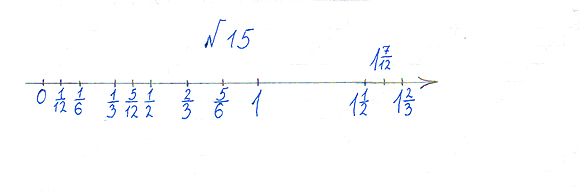 № 15
1 7/12
0 1/12 1/6 1/3 5/12 1/2 2/3 5/6 1 1 1/2 1 2/3